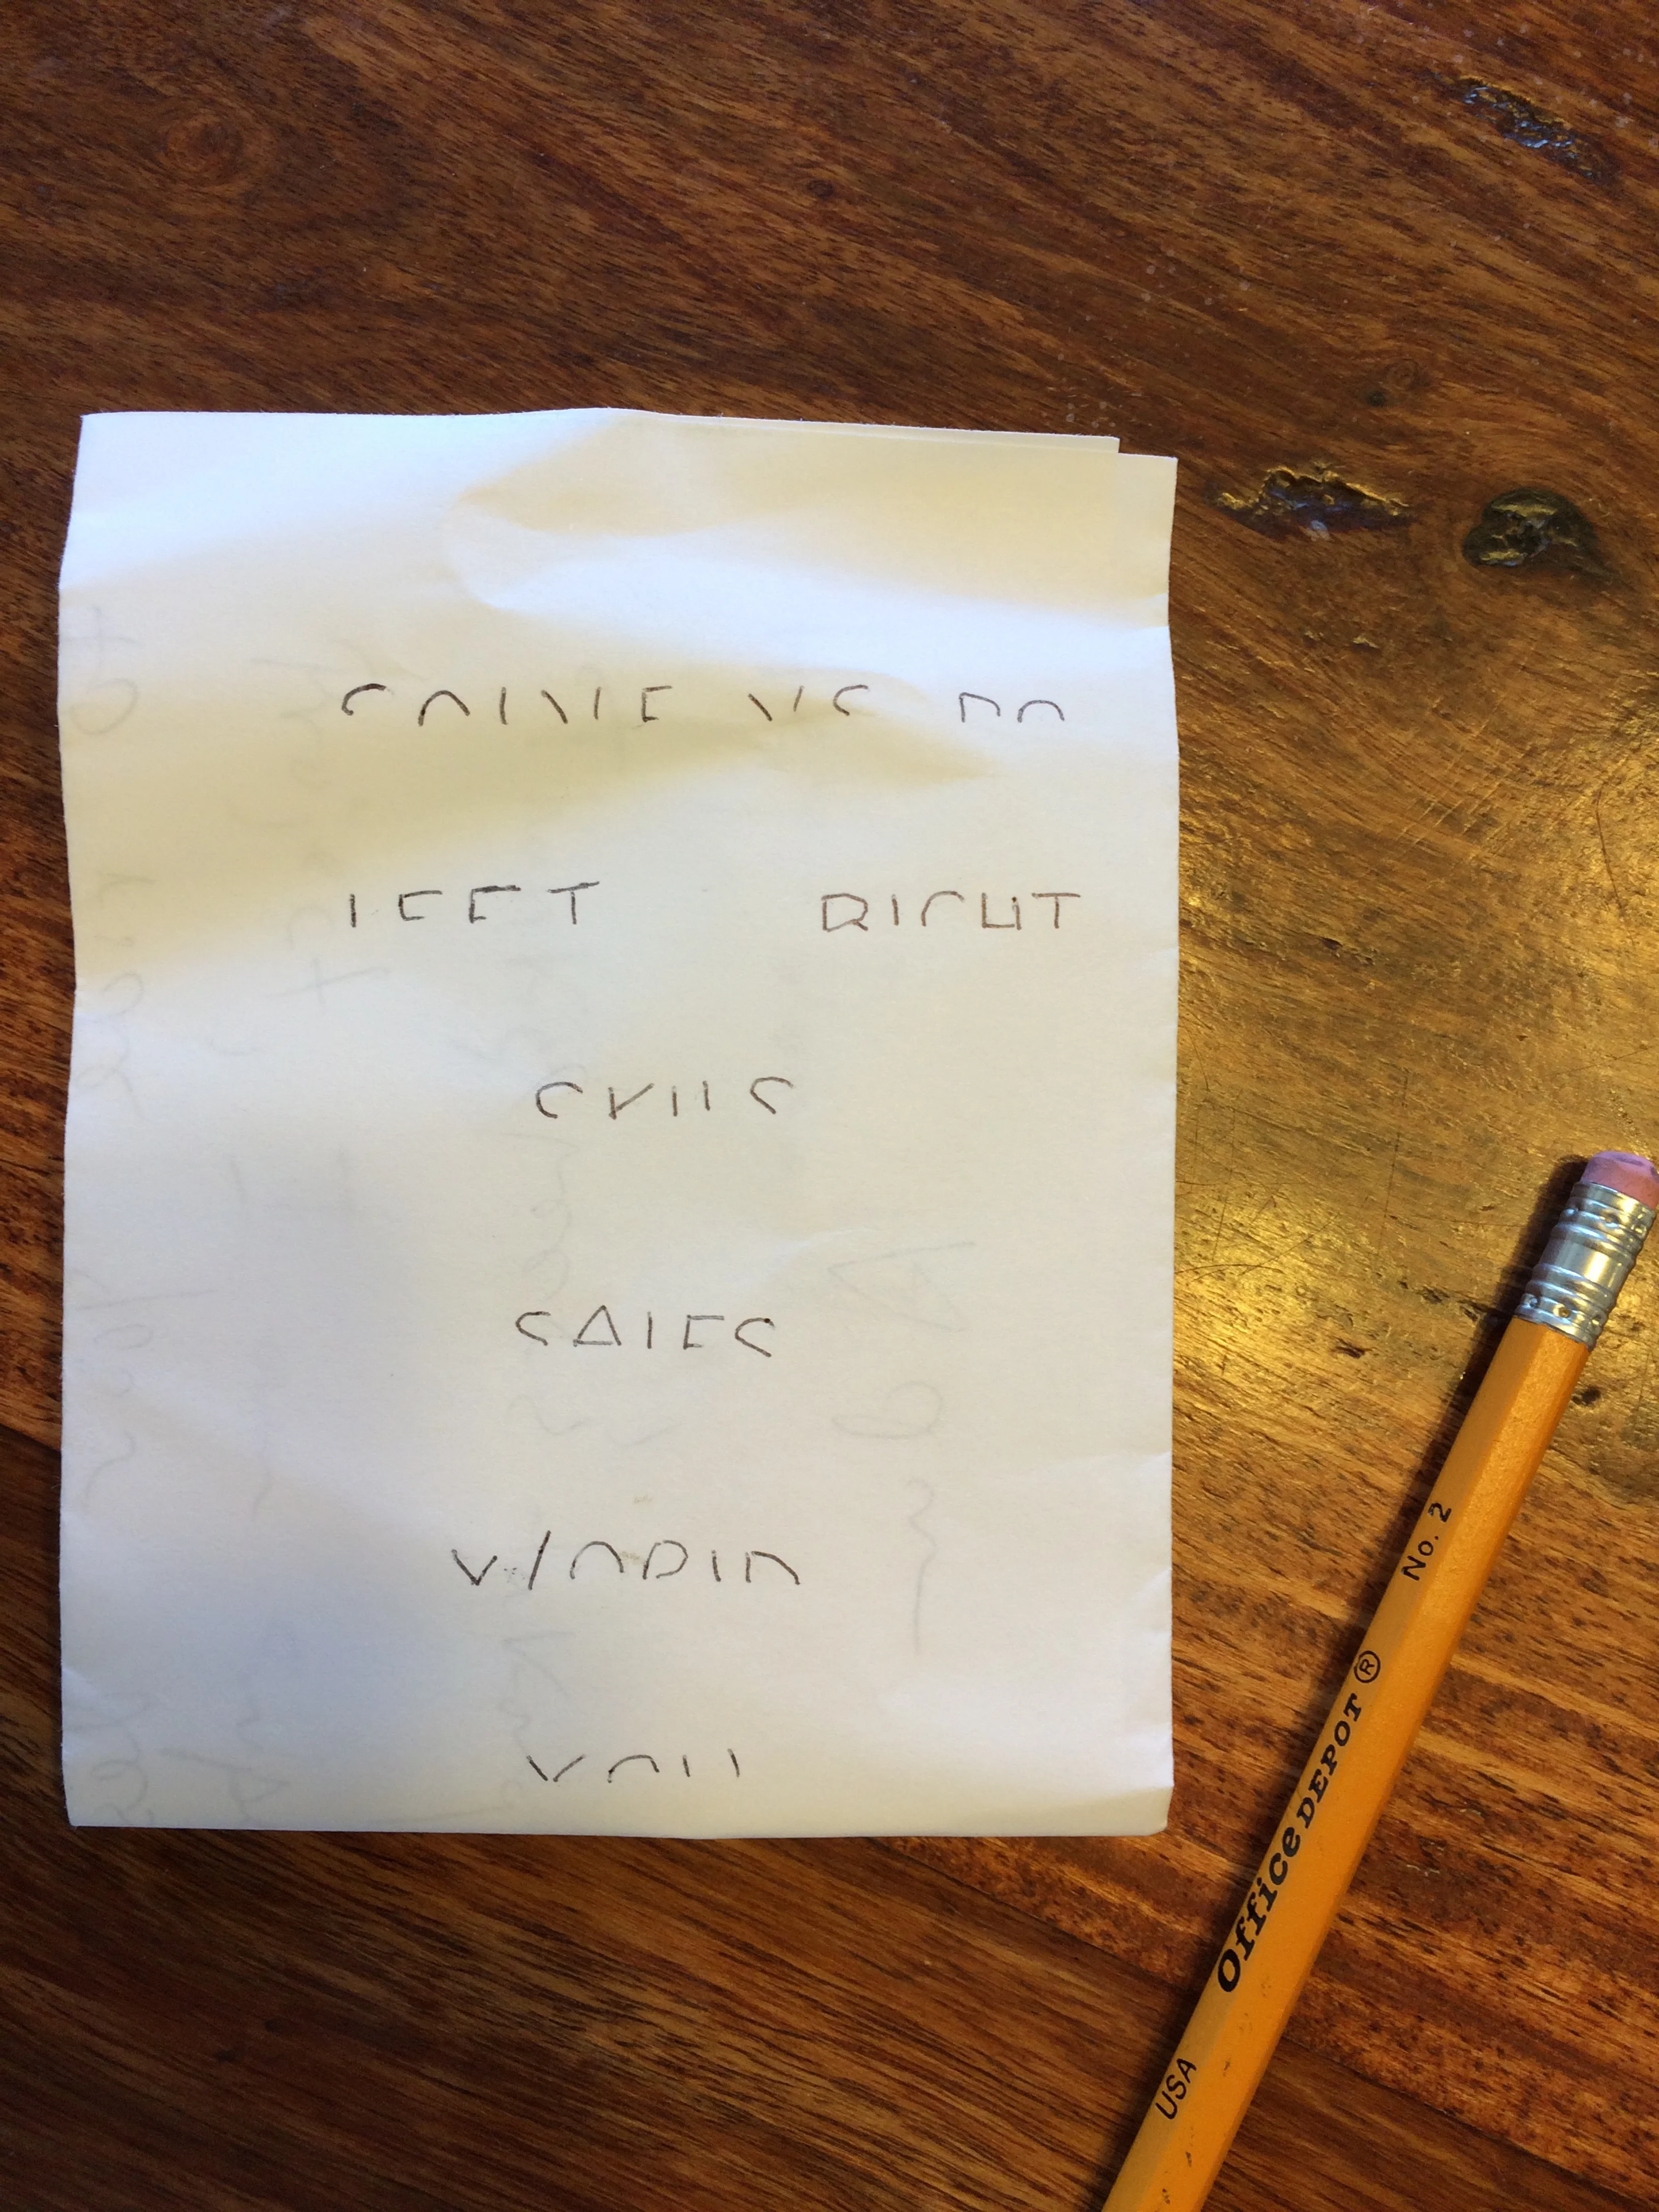 SOLVE VS DO
LEFT RIGHT
SALES
WORLD
YOU
USA Office DEPOT ® No. 2